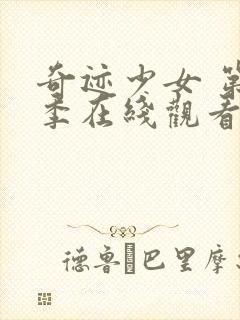 奇迹少女 第
季在綫觀看
德鲁·巴里摩